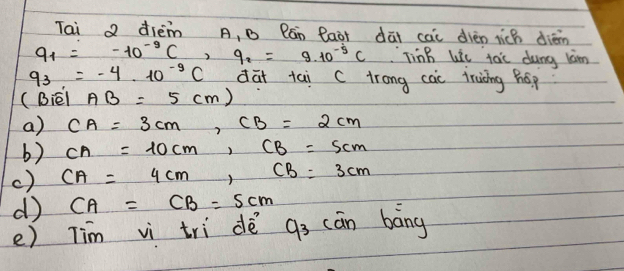 Tại 2 điểm A, B lần lượt đặt các điện tích điểm
q₁ = -10⁻⁹ C , q₂ = 9.10⁻⁹ C . Tính lực tác dụng lên
q₃ = -4 . 10⁻⁹ C đặt tại C trong các trường hợp
(Biết AB = 5 cm)
a) CA = 3 cm , CB = 2 cm
b) CA = 10 cm , CB = 5cm
c) CA = 4 cm , CB = 3 cm
d) CA = CB = 5 cm
e) Tìm vị trí để q₃ cân bằng